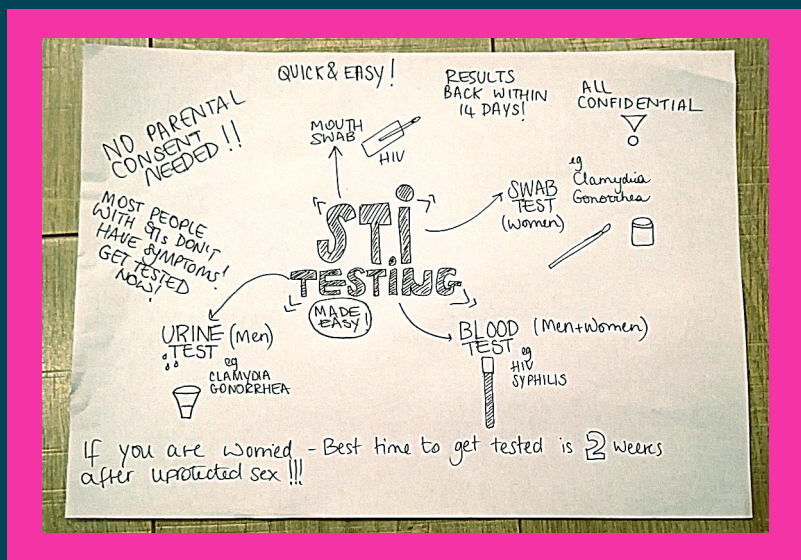 QUICK & EASY!
RESULTS
BACK WITHIN
14 DAYS!
ALL
CONFIDENTIAL
NO PARENTAL
CONSENT
NEEDED!!
MOUTH
SWAB
HIV
MOST PEOPLE
WITH STIs DON'T
HAVE SYMPTOMS!
GET TESTED
NOW!
STi
TESTiNG
MADE
EASY!
SWAB
TEST
(Women)
eg
Clamydia
Gonorrhea
URINE (Men)
TEST
eg
CLAMYDIA
GONORRHEA
BLOOD (Men+Women)
TEST
eg
HIV
SYPHILIS
If you are worried - Best time to get tested is 2 weeks
after uprotected sex!!!